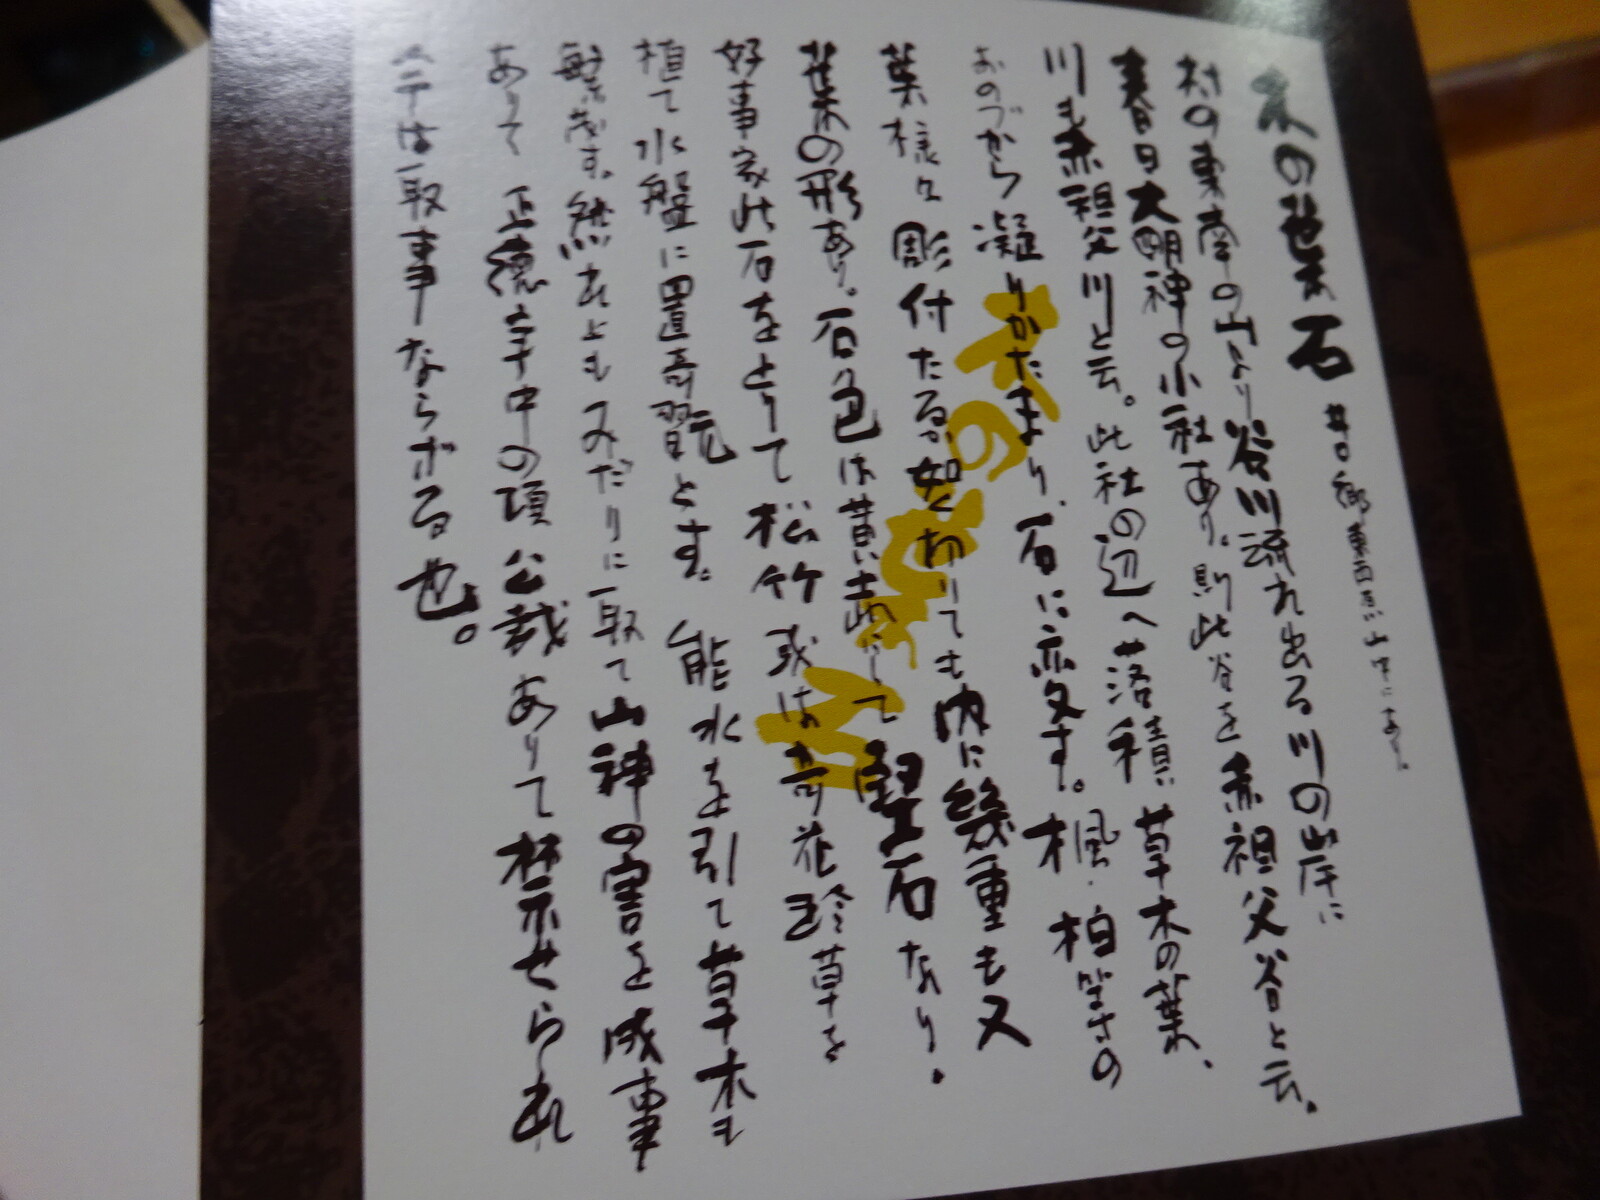 木の葉石 井口郷東西原山中にあり。
村の東南の山より谷川流れ出る川の岸に
春日大明神の小社あり。則此谷を赤祖父谷と云。
川も赤祖父川と云。此社の辺へ落積草木の葉、
おのづから凝りかたまり、石に変す。楓・柏等の
葉様々彫付たるか如くわりても内に幾重も又
葉の形あり。石色は黄赤にして堅石なり。
好事家此石をとりて松竹或は奇花珍草を
植て水盤に置奇翫とす。能水を引て草木も
繁茂す。然れともみだりに取て山神の害を成事
ありて正徳年中の頃公裁ありて禁示せられ
今ニテは取事ならざる也。
木の